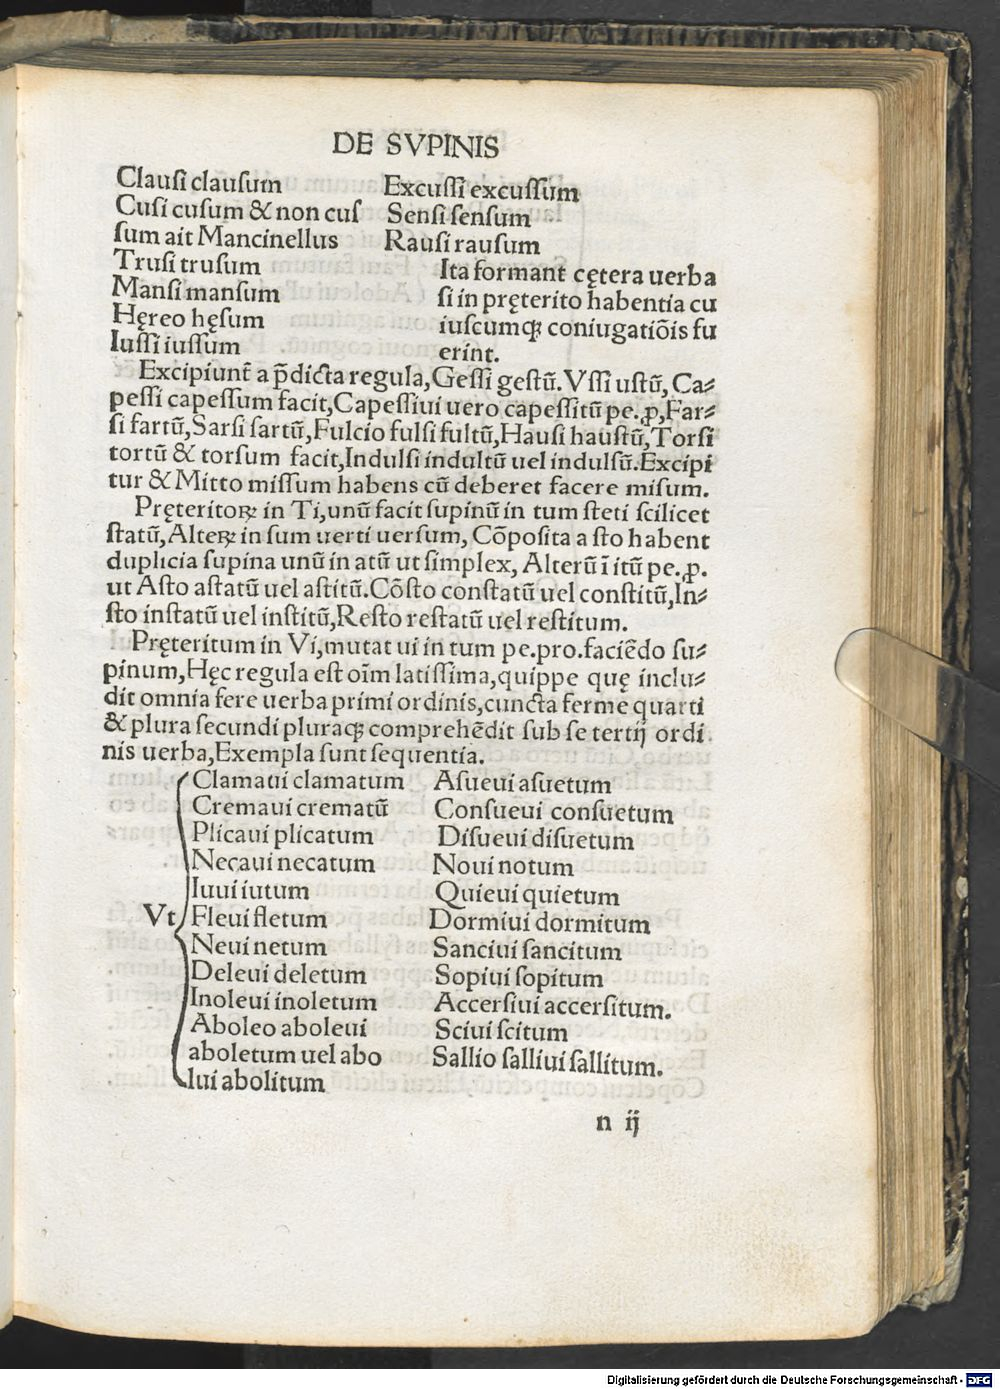 DE SVPINIS
Clauſi clauſum
Cuſi cuſum & non cuſ
ſum ait Mancinellus
Truſi truſum
Manſi manſum
Hęreo hęſum
Iuſſi iuſſum
Excuſſi excuſſum
Senſi ſenſum
Rauſi rauſum
Ita formant cętera uerba
ſi in pręterito habentia cu
iuſcumqꝫ coniugatiõis fu
erint.
Excipiunt̃ a p̃dicta regula,Geſſi geſtũ.Vſſi uſtũ, Ca⸗
peſſi capeſſum facit,Capeſſiui uero capeſſitũ pe.ꝓ,Far⸗
ſi fartũ,Sarſi ſartũ,Fulcio fulſi fultũ,Hauſi hauſtũ,Torſi
tortũ & torſum facit,Indulſi indultũ uel indulſũ.Excipi
tur & Mitto miſſum habens cũ deberet facere miſum.
Pręteritoꝝ in Ti,unũ facit ſupinũ in tum ſteti ſcilicet
ſtatũ,Alteꝝ in ſum uerti uerſum, Cõpoſita a ſto habent
duplicia ſupina unũ in atũ ut ſimplex, Alterũ ĩ itũ pe.ꝓ.
ut Aſto aſtatũ uel aſtitũ.Cõſto conſtatũ uel conſtitũ,In⸗
ſto inſtatũ uel inſtitũ,Reſto reſtatũ uel reſtitum.
Pręteritum in Vi,mutat ui in tum pe.pro.faciẽdo ſu⸗
pinum,Hęc regula eſt oĩm latiſſima,quippe quę inclu⸗
dit omnia fere uerba primi ordinis,cuncta ferme quarti
& plura ſecundi pluraqꝫ comprehẽdit ſub ſe tertij ordi
nis uerba,Exempla ſunt ſequentia.
Vt
Clamaui clamatum
Cremaui crematũ
Plicaui plicatum
Necaui necatum
Iuui iutum
Fleui fletum
Neui netum
Deleui deletum
Inoleui inoletum
Aboleo aboleui
aboletum uel abo
lui abolitum
Aſueui aſuetum
Conſueui conſuetum
Diſueui diſuetum
Noui notum
Quieui quietum
Dormiui dormitum
Sanciui ſancitum
Sopiui ſopitum
Accerſiui accerſitum.
Sciui ſcitum
Sallio ſalliui ſallitum.
n ij
Digitalisierung gefördert durch die Deutsche Forschungsgemeinschaft - DFG